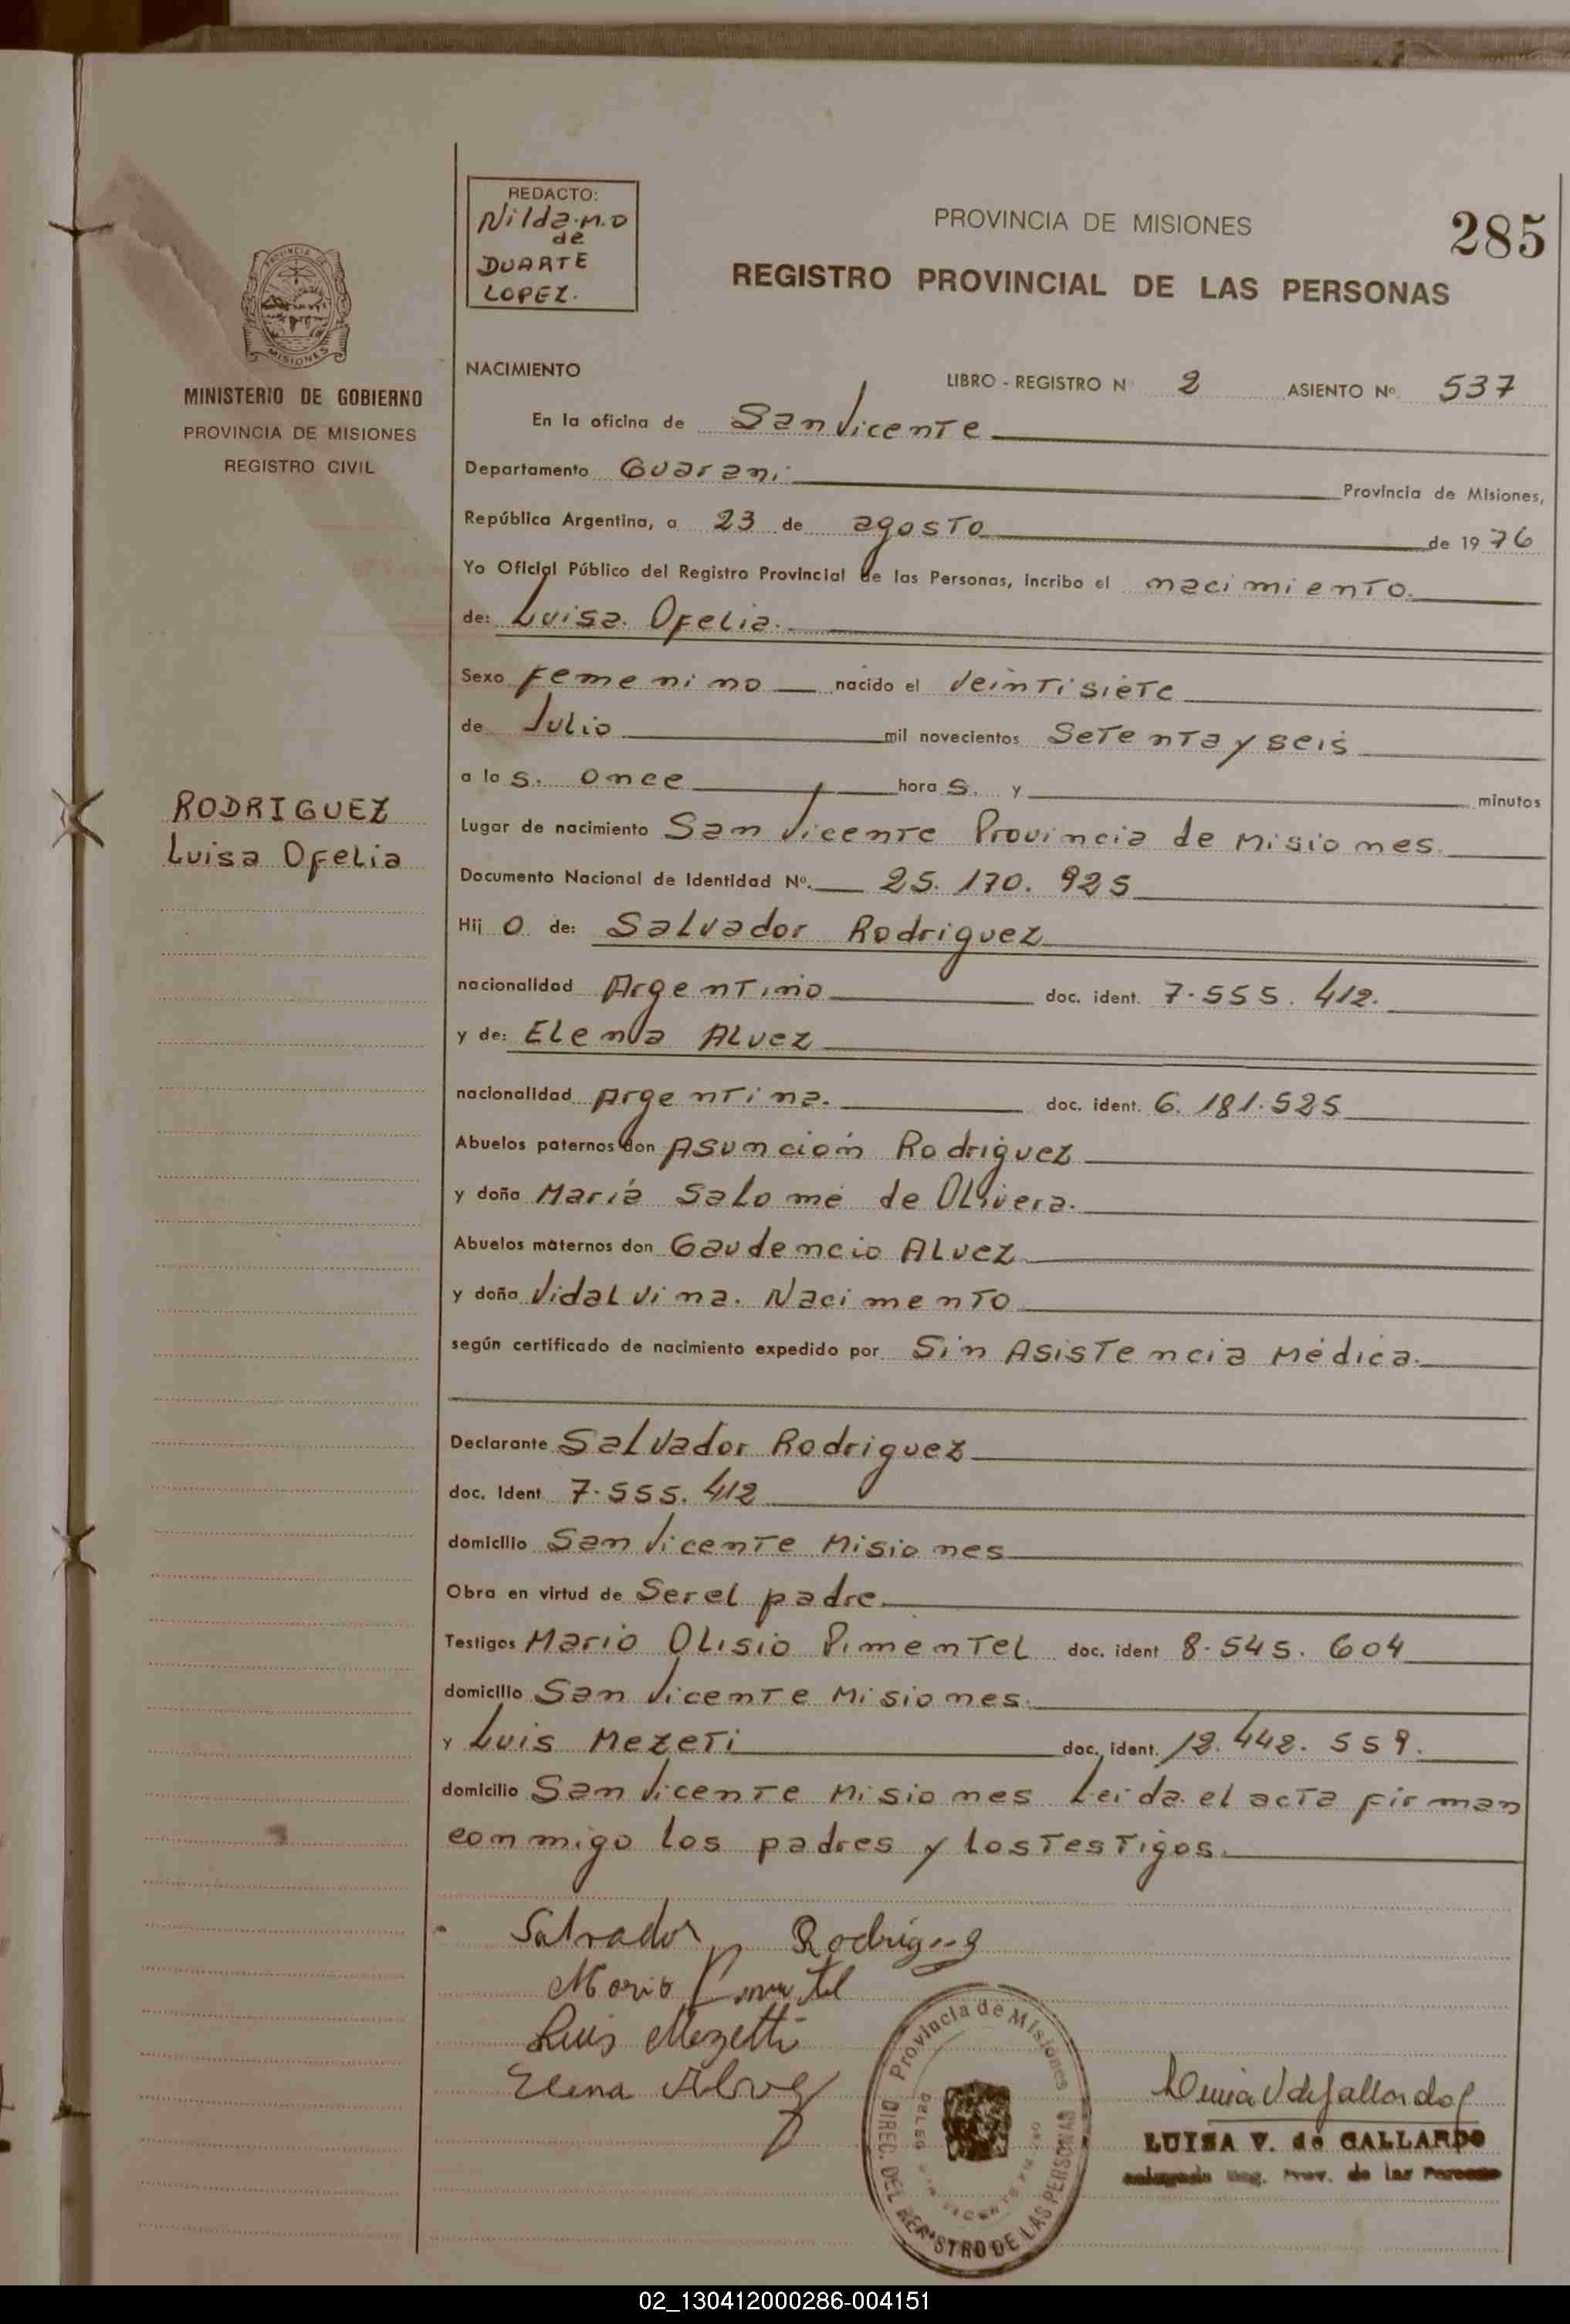 REDACTO:
Nilda.M.D
de
DUARTE
LOPEZ.
PROVINCIA DE MISIONES
285
REGISTRO PROVINCIAL DE LAS PERSONAS
PROVINCIA DE
MISIONES
MINISTERIO DE GOBIERNO
PROVINCIA DE MISIONES
REGISTRO CIVIL
RODRIGUEZ
Luisa Ofelia
NACIMIENTO LIBRO - REGISTRO N 2 ASIENTO Nº. 537
En la oficina de San Vicente
Departamento Guarani Provincia de Misiones,
República Argentina, a 23 de agosto de 1976
Yo Oficial Público del Registro Provincial de las Personas, incribo el nacimiento.
de: Luisa. Ofelia.
Sexo femenino nacido el veintisiete
de Julio mil novecientos setenta y seis
a las. once horas. y minutos
Lugar de nacimiento San Vicente Provincia de Misiones.
Documento Nacional de Identidad Nº. 25.170.925
Hij o de: Salvador Rodriguez
nacionalidad Argentino doc. ident. 7.555.412.
y de: Elena Alvez
nacionalidad Argentina. doc. ident. 6.181.525
Abuelos paternos don Asunción Rodriguez
y doña María Salomé de Olivera.
Abuelos maternos don Gaudencio Alvez
y doña Vidalvina. Nacimento
según certificado de nacimiento expedido por Sin Asistencia Médica.
Declarante Salvador Rodriguez
doc. Ident 7.555.412
domicilio San Vicente Misiones
Obra en virtud de Ser el padre.
Testigos Mario Olisio Pimentel doc. ident 8.545.604
domicilio San Vicente Misiones.
y Luis Mezeti doc. ident. 12.442.559.
domicilio San Vicente Misiones Leida el acta firman
conmigo los padres y los testigos.
Salvador Rodriguez
Mario Pimentel
Luis Mezetti
Elena Alvez
Provincia de Misiones
DIREC. DEL REGISTRO DE LAS PERSONAS
Luisa V de Gallardo
LUISA V. de GALLARDO
Reg. Prov. de las Personas
02_130412000286-004151